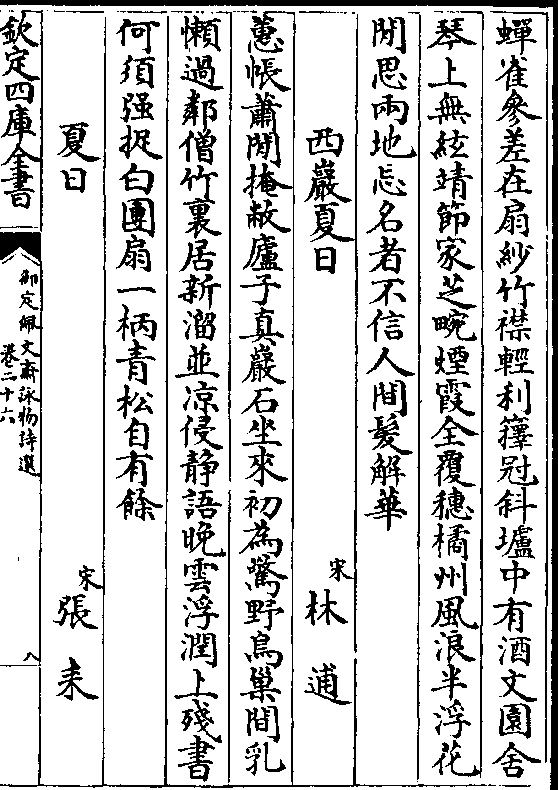 蟬雀參差在扇紗竹襟輕利籜冠斜壚中有酒文園舍
琴上無絃靖節家芝畹煙霞全覆穗橘州風浪半浮花
閒思兩地忘名者不信人間髮解華
西巖夏日 宋 林逋
蕙帳蕭閒掩敝廬子真巖石坐來初為驚野鳥巢間乳
懶過鄰僧竹裏居新溜並凉侵静語晚雲浮潤上殘書
何須强捉白團扇一柄青松自有餘
夏日 宋 張耒
欽定四庫全書
御定佩文齋詠物詩選
卷二十六
八